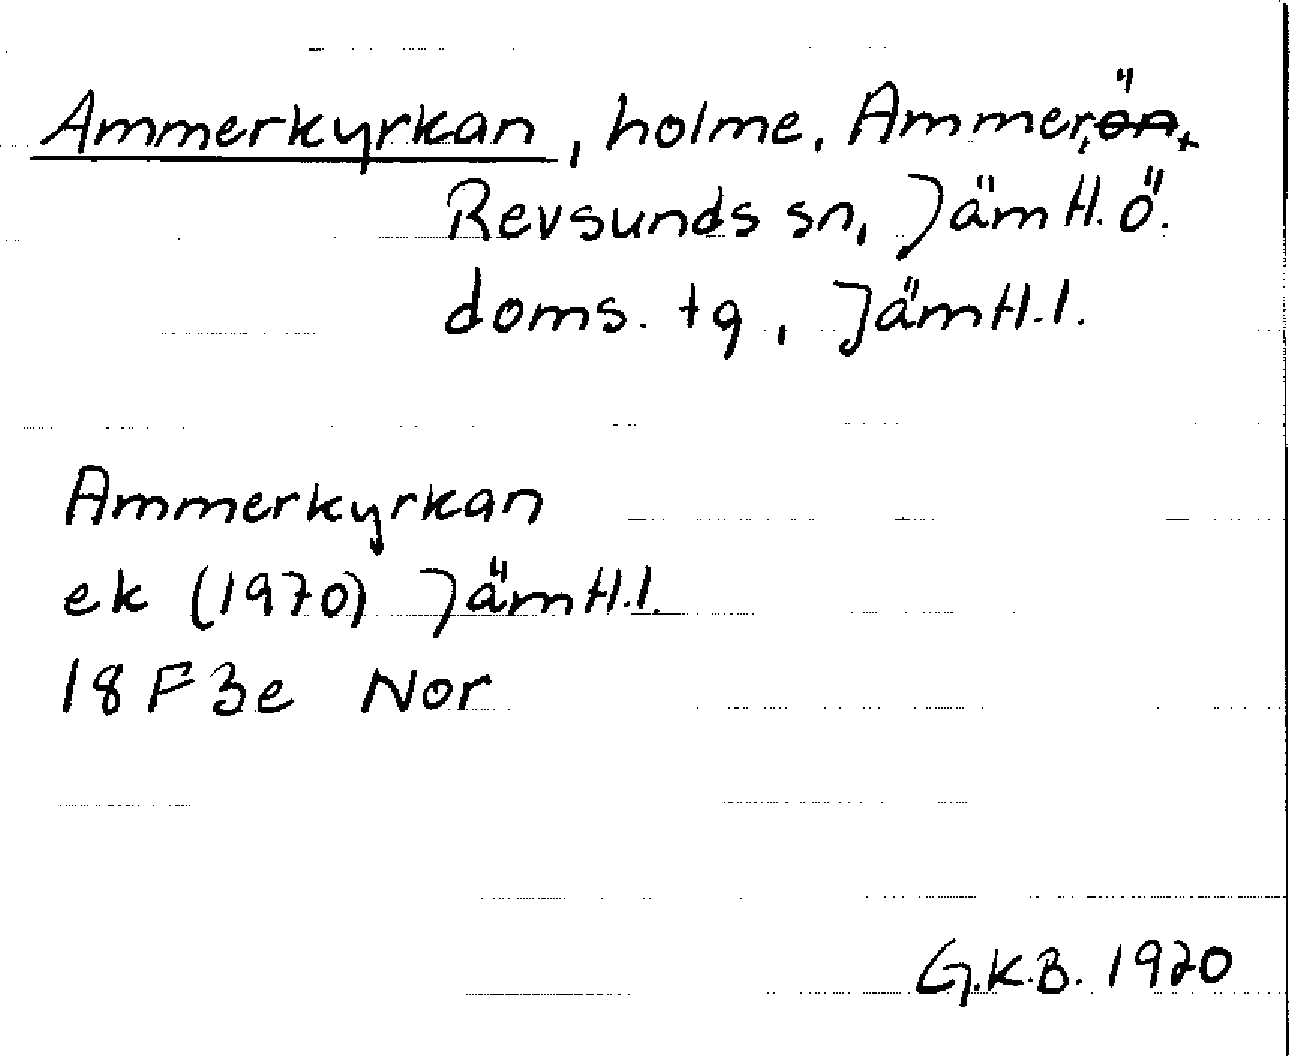 Ammerkyrkan, holme, Ammer,
Revsunds sn, Jämtl. ö.
doms. tg, Jämtl. l.
Ammerkyrkan
ek (1970) Jämtl. l.
18 F 3e Nor
G.K.B. 1970